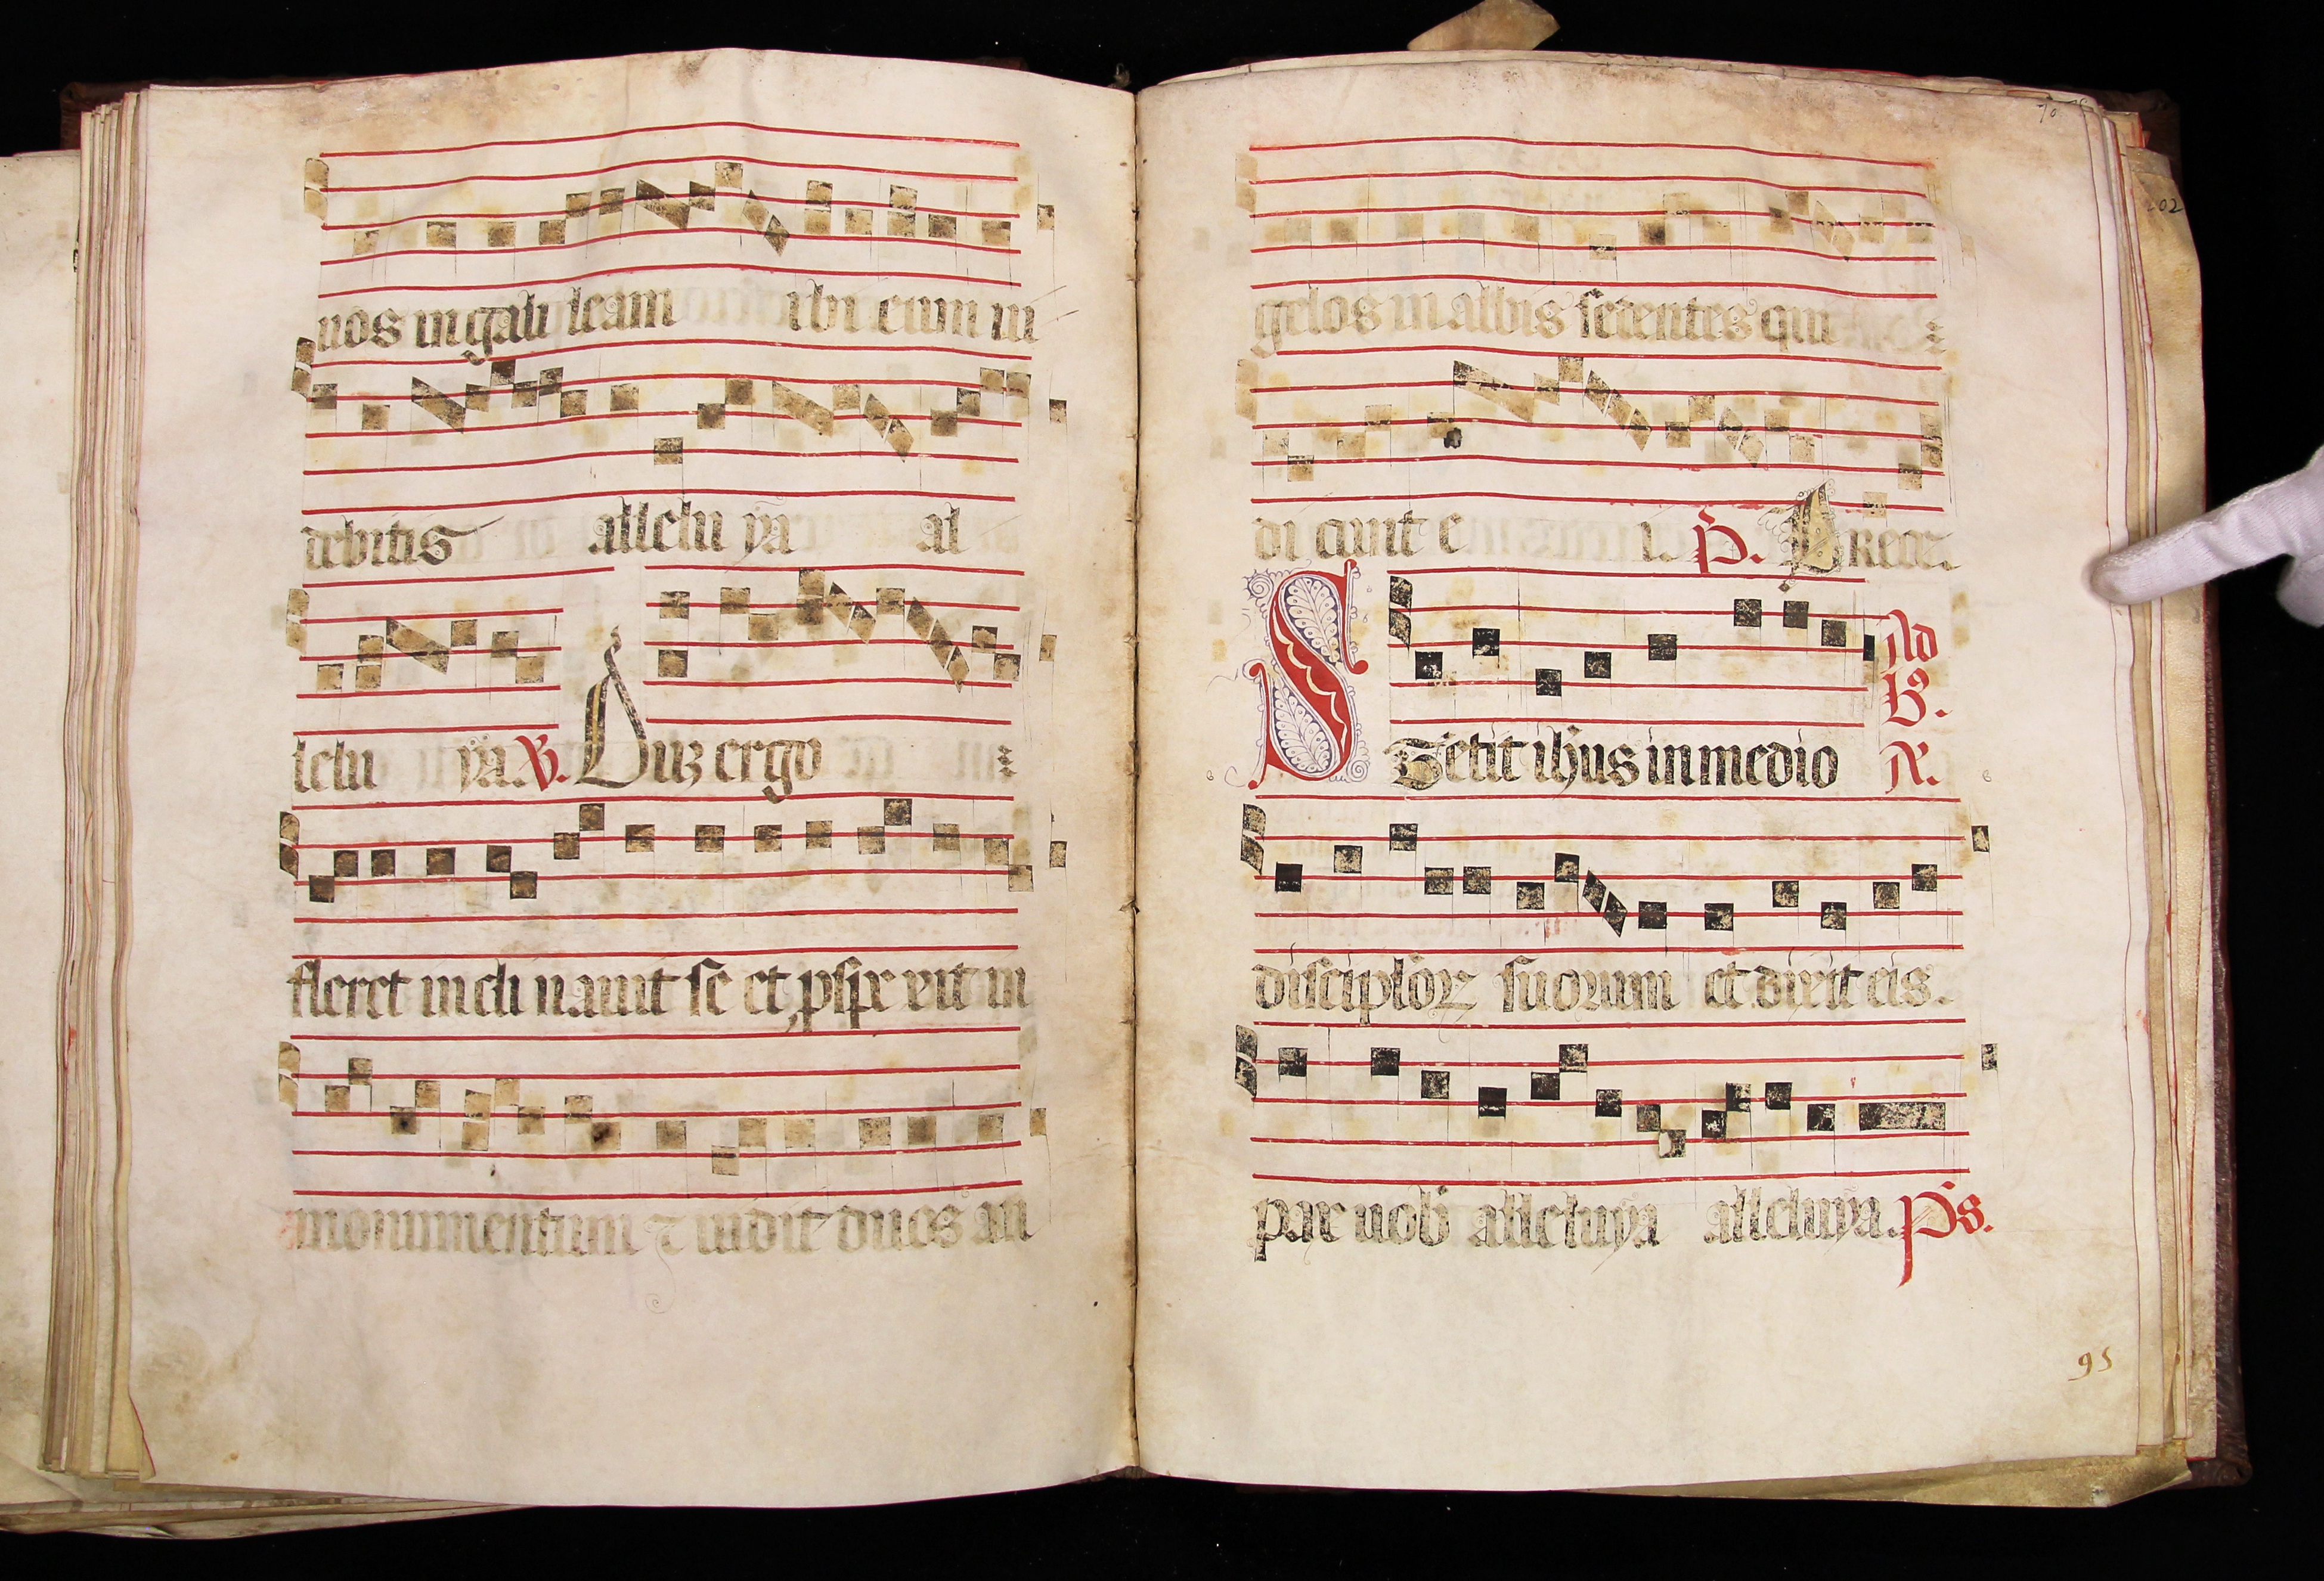 uos in gali leam ibi eum ui
debitis allelu ya al
lelu ya. V. Duz ergo
fleret incli nauit se et pspe xit in
monumentum ⁊ uidit duos an
70
202
gelos in albis sedentes qui
di cunt e i. P. Prece.
Stetit ihus in medio
Ad
B.
R.
discipulor suorum et dixit eis.
pax uob alleluya alleluya. Ps.
95